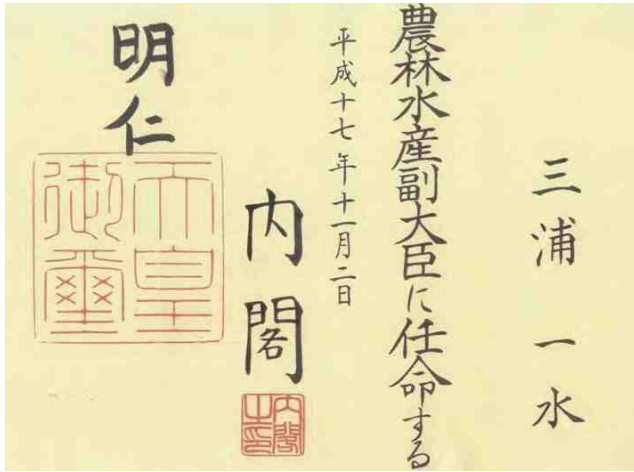 三浦一水
農林水産副大臣に任命する
平成十七年十一月二日
内閣
内閣之印
明仁
天皇御璽